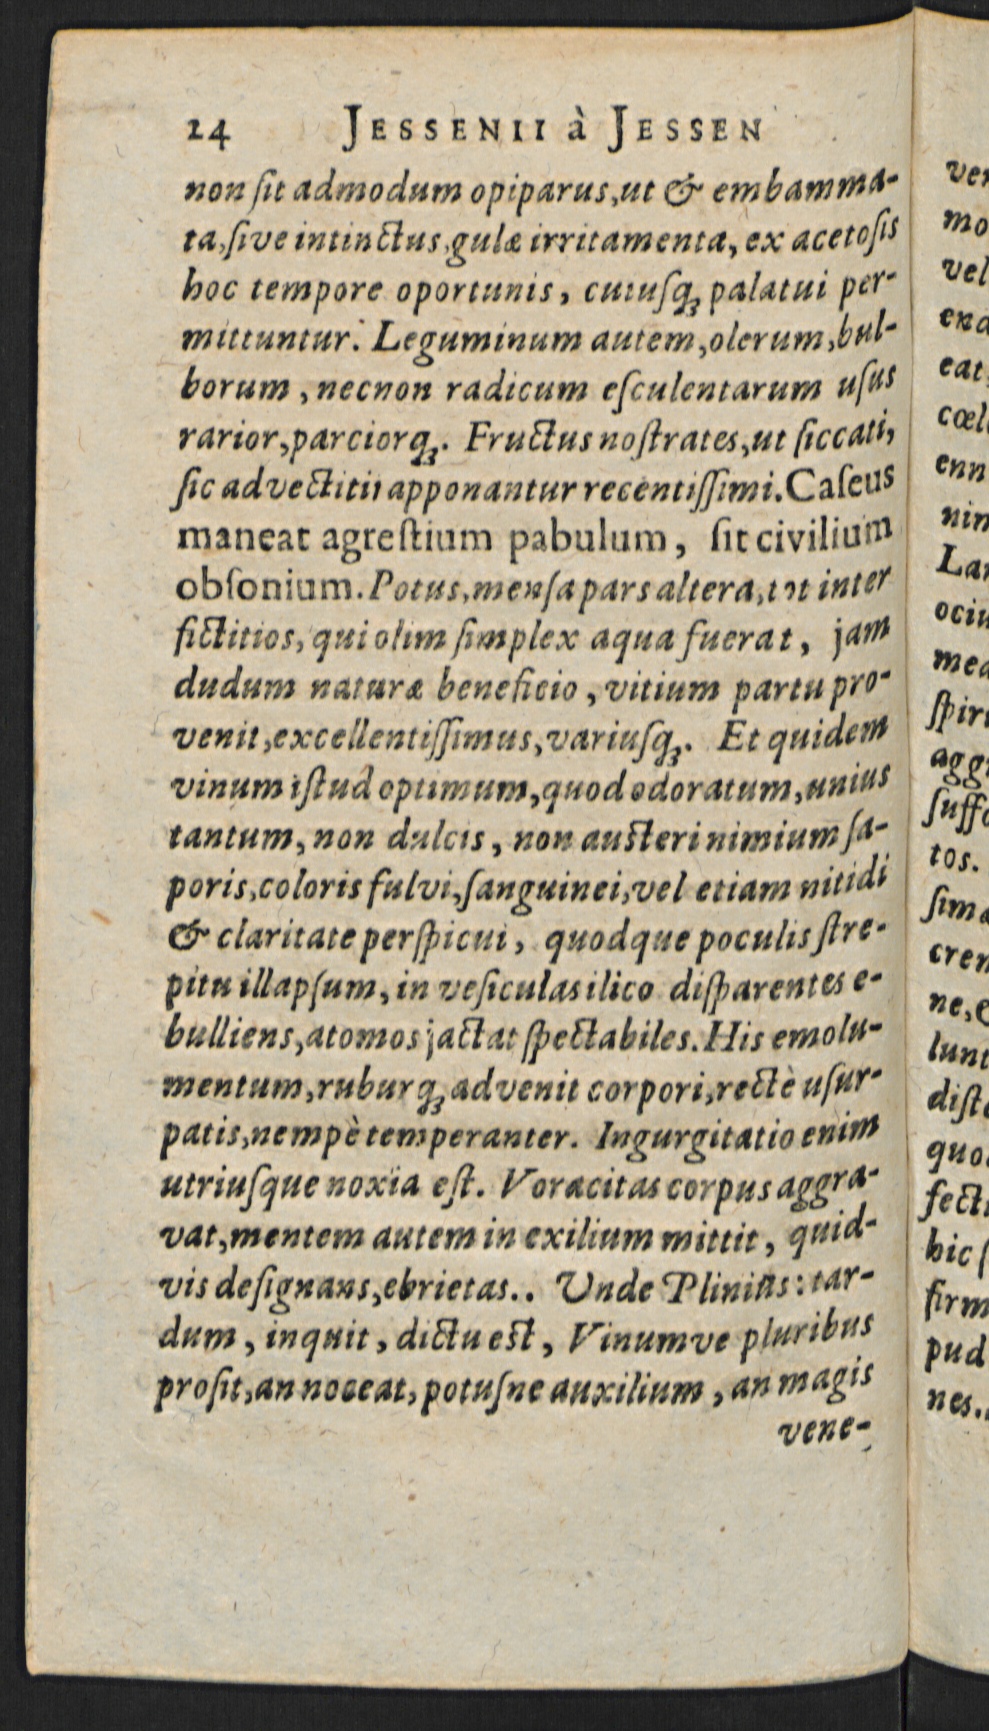 24 JESSENII à JESSEN
non ſit admodum opiparus, ut & embamma-
ta, ſive intinctus, gulæ irritamenta, ex acetoſis
hoc tempore oportunis, cuiuſq; palatui per-
mittuntur. Leguminum autem, olerum, bul-
borum, necnon radicum eſculentarum uſus
rarior, parciorq;. Fructus noſtrates, ut ſiccati,
ſic advectitii apponantur recentiſſimi. Caſeus
maneat agreſtium pabulum, ſit civilium
obſonium. Potus, menſa pars altera, tot inter
fictitios, qui olim ſimplex aqua fuerat, jam
dudum naturæ beneficio, vitium partu pro-
venit, excellentiſſimus, variuſq;. Et quidem
vinum iſtud optimum, quod odoratum, unius
tantum, non dulcis, non auſteri nimium ſa-
poris, coloris fulvi, ſanguinei, vel etiam nitidi
& claritate perſpicui, quodque poculis ſtre-
pitu illapſum, in veſiculas ilico diſparentes e-
bulliens, atomos jactat ſpectabiles. His emolu-
mentum, ruburq; advenit corpori, rectè uſur-
patis, nempè temperanter. Ingurgitatio enim
utriuſque noxia eſt. Voracitas corpus aggra-
vat, mentem autem in exilium mittit, quid-
vis deſignans, ebrietas.. Unde Plinius: tar-
dum, inquit, dictu eſt, Vinumve pluribus
proſit, an noceat, potuſne auxilium, an magis
vene-
ver
mo
vel
eat
enn
nim
Lan
ociu
mea
ſpiri
aggr
ſuffo
tos.
crem
lunt
diſt
quo
fecti
hic ſ
firm
pud
nes.